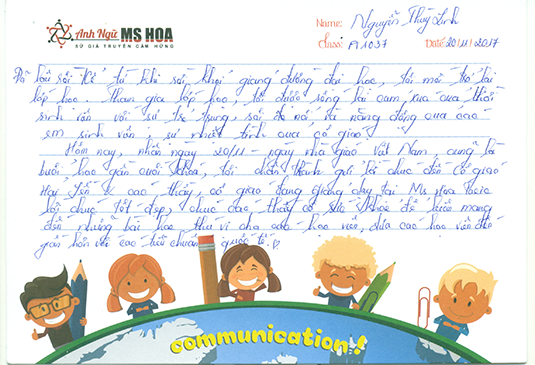 Anh Ngữ MS HOA
SỨ GIẢ TRUYỀN CẢM HỨNG
Name: Nguyễn Thùy Linh
Class: A1037 Date: 20/11/2017
kể từ khi rời khỏi giảng đường đại học, tôi mới trở lại
lớp học. Tham gia lớp học, tôi được sống lại cảm xúc của thời
sinh viên với sự trẻ trung, sôi nổi, và năng động của các
em sinh viên, sự nhiệt tình của cô giáo.
Hôm nay, nhân ngày 20/11 - ngày nhà giáo Việt Nam, cũng là
buổi học gần cuối khóa, tôi chân thành gửi lời chúc đến cô giáo
Hải Yến và các thầy, cô giáo đang giảng dạy tại Ms Hoa Toeic
lời chúc tốt đẹp, chúc các thầy cô sức khỏe để luôn mang
đến những bài học thú vị cho các học viên, đưa các học viên đến
gần hơn với các tiêu chuẩn quốc tế.
communication!